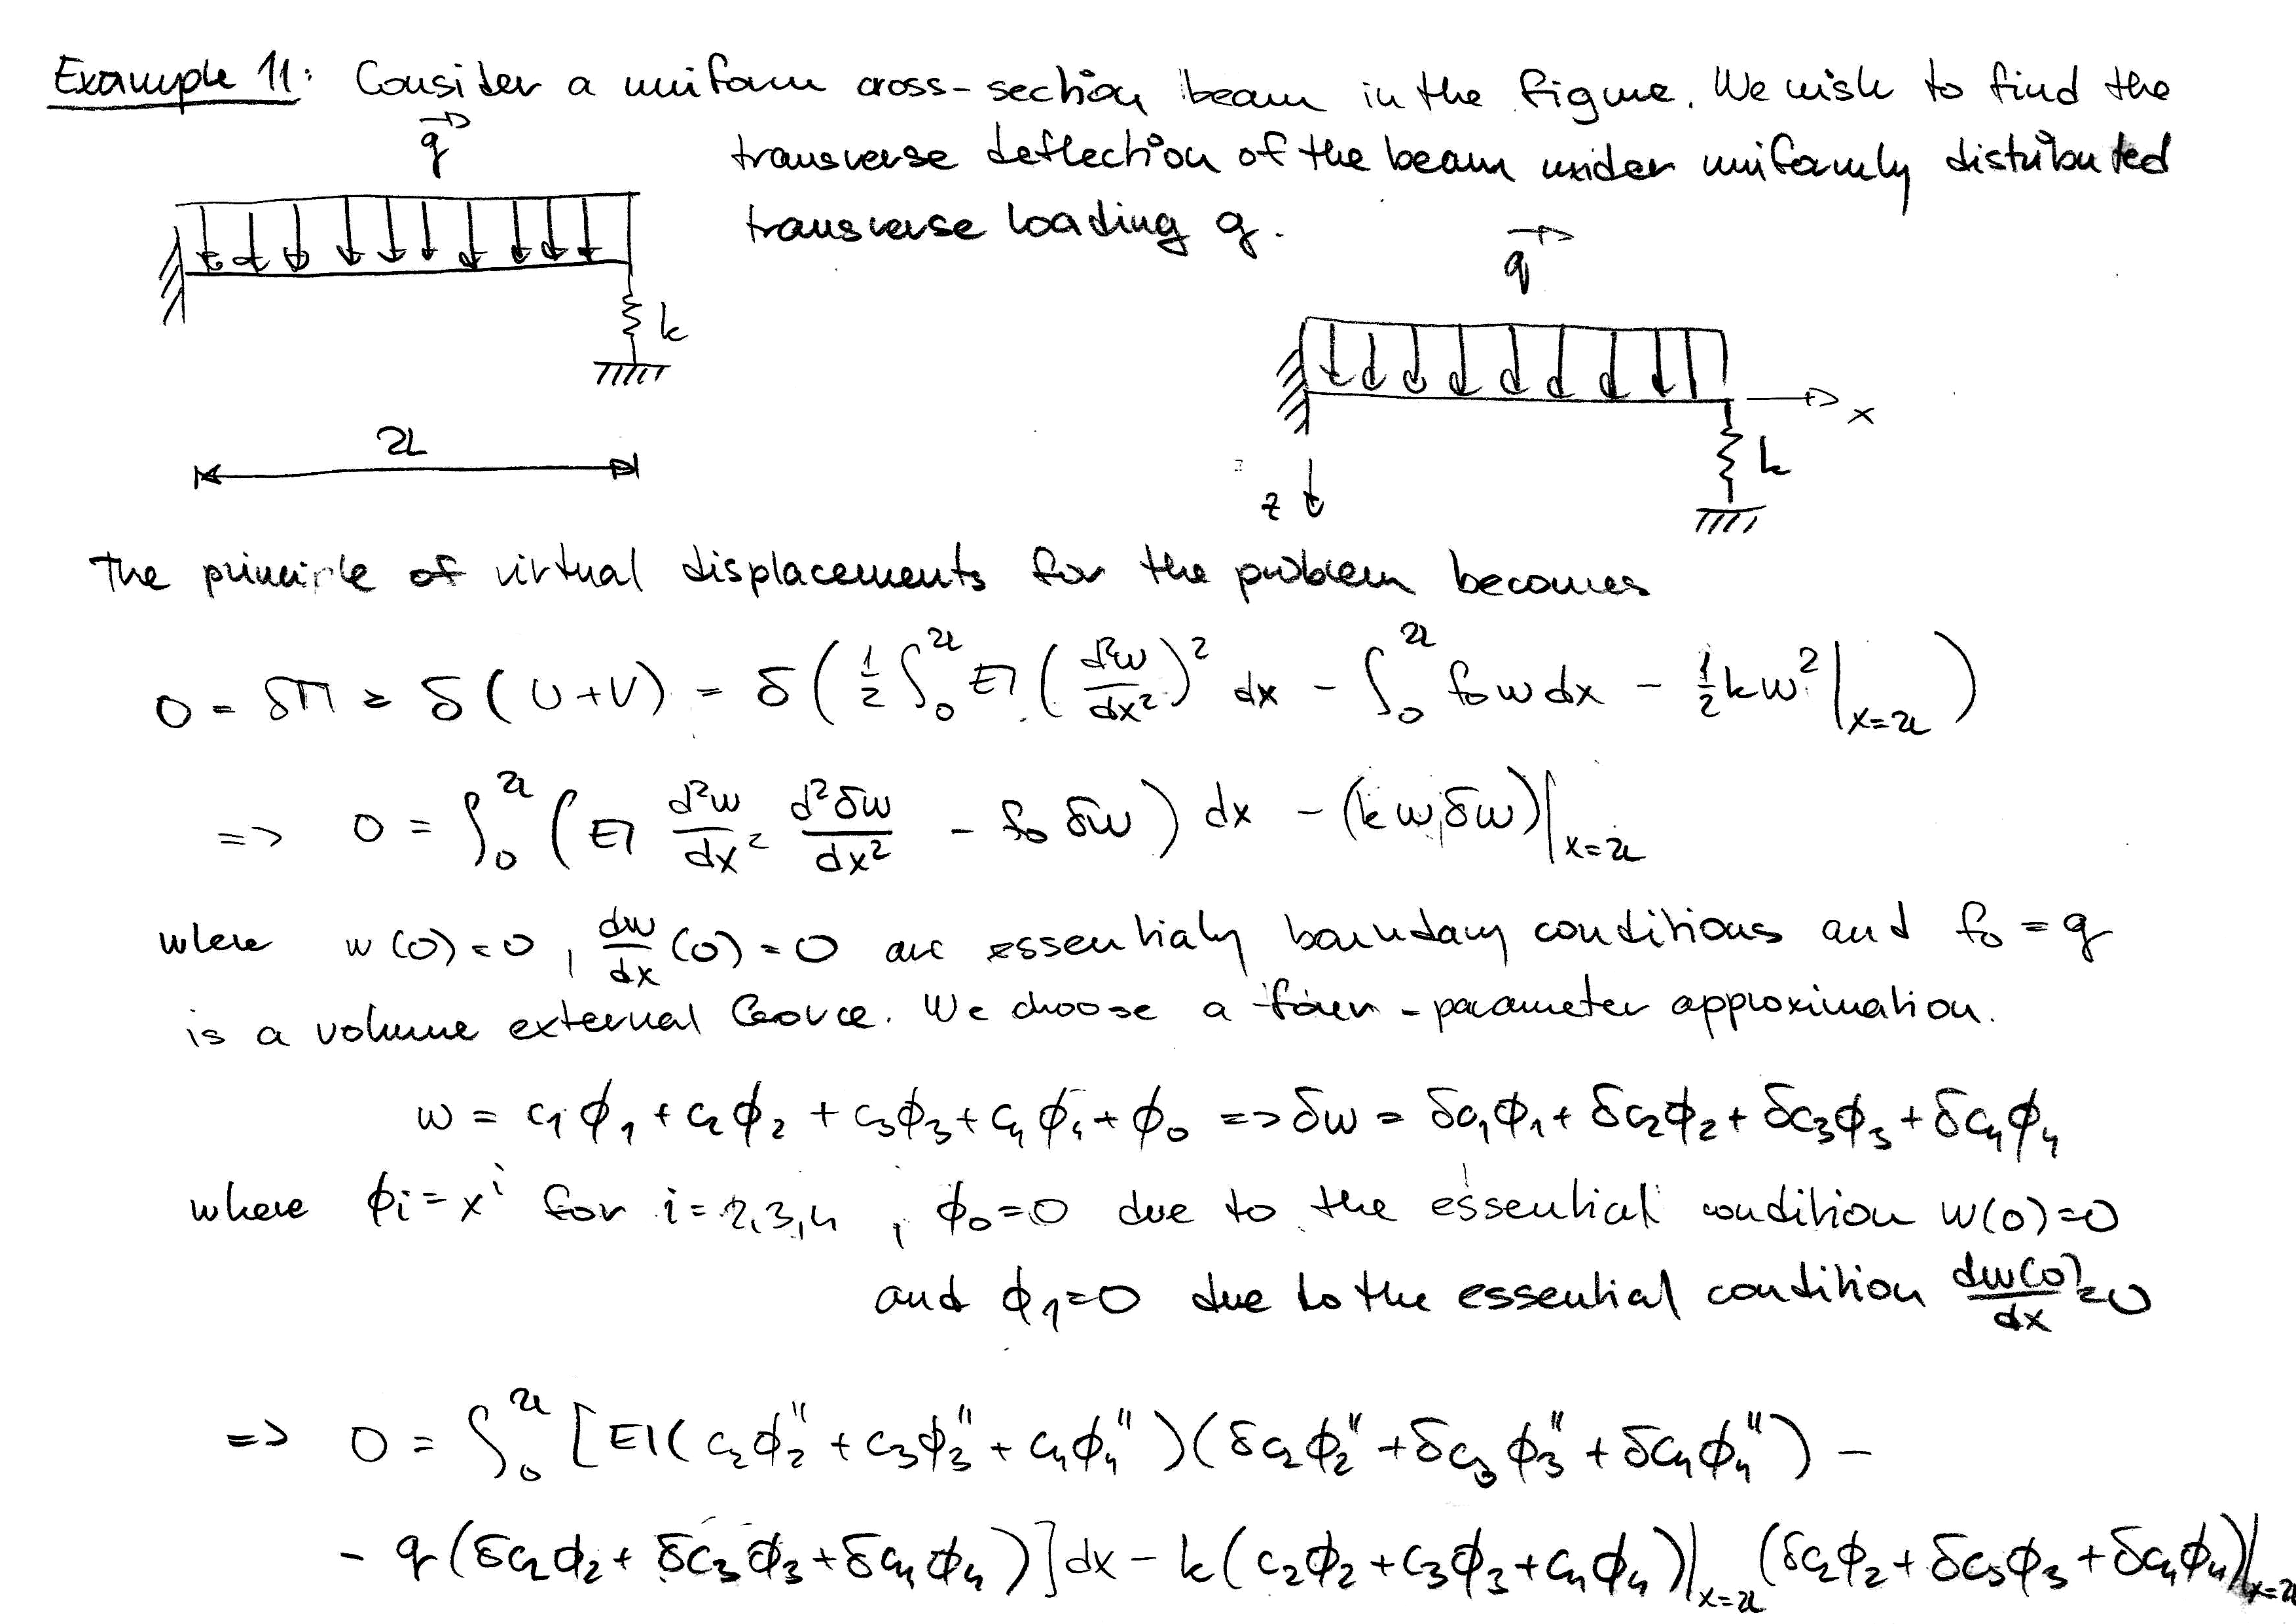 Example 11: Consider a uniform cross-section beam in the figure. We wish to find the
transverse deflection of the beam under uniformly distributed
transverse loading q.
q
k
2L
q
x
k
z
The principle of virtual displacements for the problem becomes
0 = δΠ = δ(U+V) = δ(½∫₀²ᴸ EI (d²w/dx²)² dx - ∫₀²ᴸ f₀w dx - ½kw²|x=2L)
=> 0 = ∫₀²ᴸ (EI d²w/dx² d²δw/dx² - f₀ δw) dx - (kwδw)|x=2L
where w(0)=0, dw/dx(0)=0 are essentialy boundary conditions and f₀ = q
is a volume external force. We choose a four-parameter approximation.
w = c₁ϕ₁ + c₂ϕ₂ + c₃ϕ₃ + c₄ϕ₄ + ϕ₀ => δw = δc₁ϕ₁ + δc₂ϕ₂ + δc₃ϕ₃ + δc₄ϕ₄
where ϕi = xⁱ for i = 2,3,4, ϕ₀=0 due to the essential condition w(0)=0
and ϕ₁=0 due to the essential condition dw(0)/dx=0
=> 0 = ∫₀²ᴸ [EI(c₂ϕ₂'' + c₃ϕ₃'' + c₄ϕ₄'')(δc₂ϕ₂'' + δc₃ϕ₃'' + δc₄ϕ₄'') -
- q(δc₂ϕ₂ + δc₃ϕ₃ + δc₄ϕ₄)]dx - k(c₂ϕ₂ + c₃ϕ₃ + c₄ϕ₄)|x=2L (δc₂ϕ₂ + δc₃ϕ₃ + δc₄ϕ₄)|x=2L